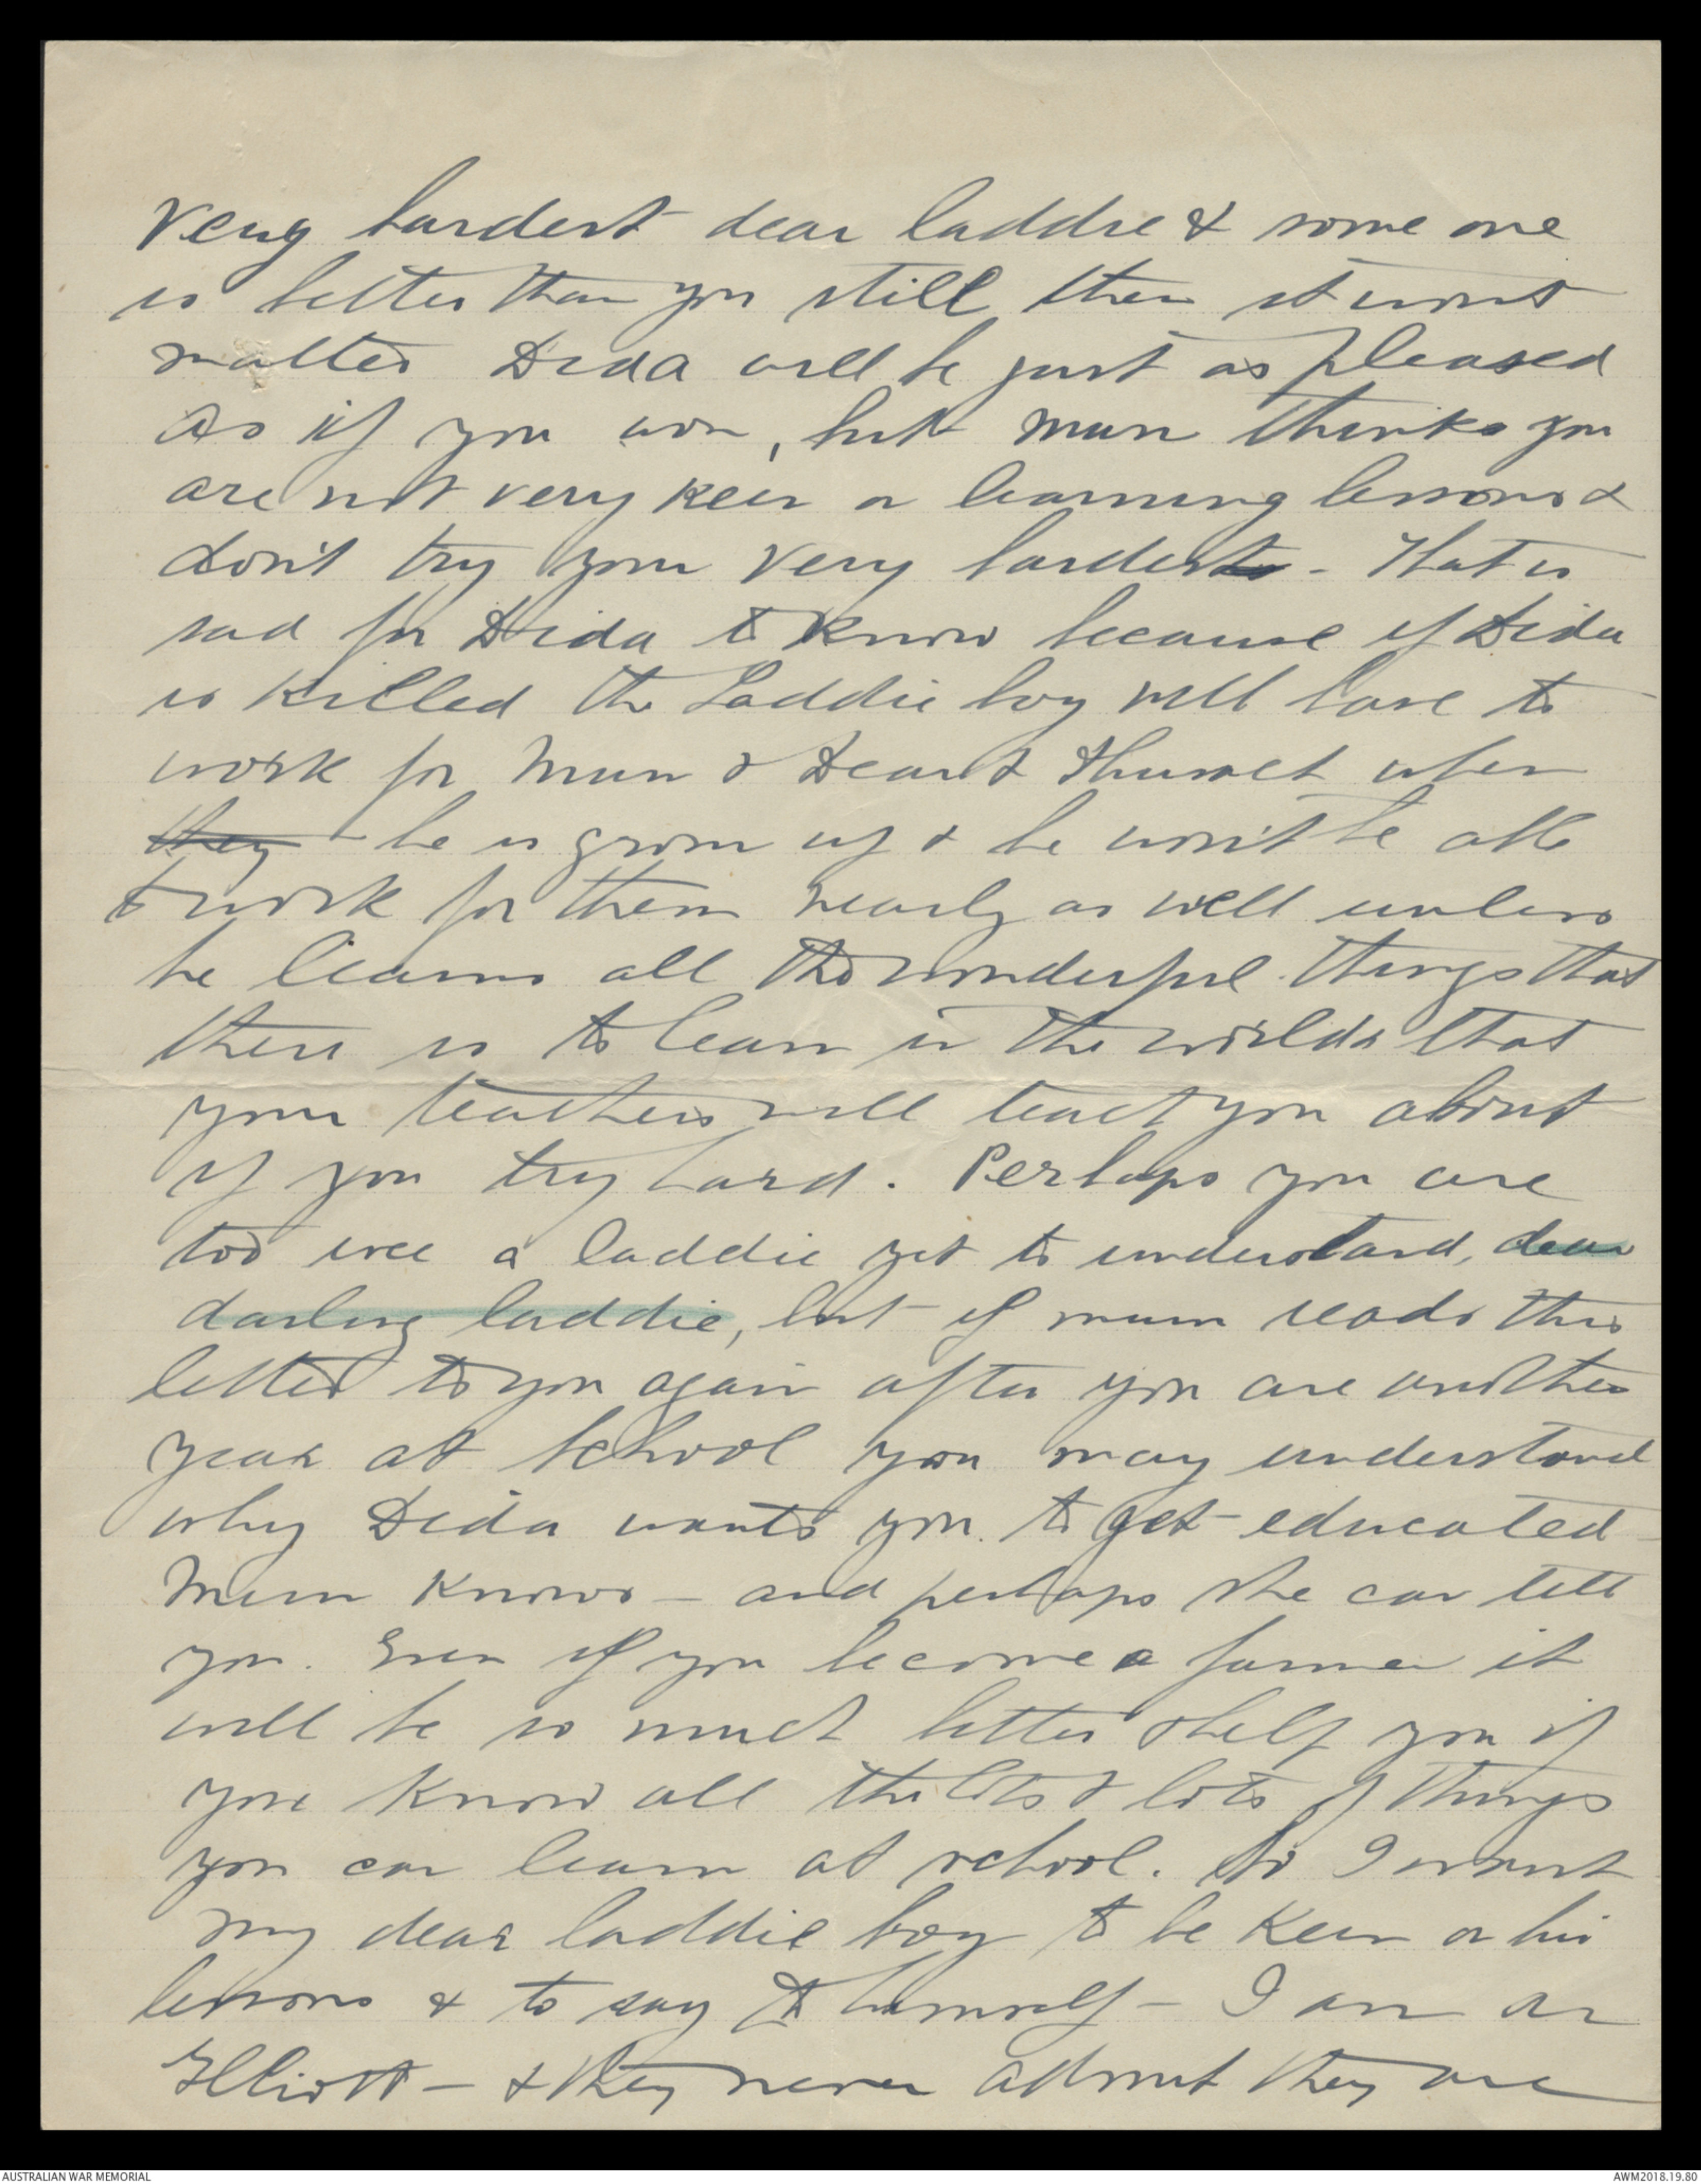 very hardest dear laddie & some one
is better than you still then it wont
matter Dida will be just as pleased
as if you won, but mum thinks you
are not very keen on learning lessons &
don't try your very hardest - That is
sad for Dida to know because if Dida
is killed the Laddie boy will have to
work for Mum & Dear when
they he is grown up & he won't be able
to work for them nearly as well unless
he learns all the wonderful things that
there is to learn in the world & that
your teachers will teach you about
if you try hard. Perhaps you are
too wee a laddie yet to understand, dear
darling laddie, but if mum reads this
letter to you again after you are another
year at school you may understand
why Dida wants you to get educated
Mum knows - and perhaps she can tell
you. Even if you become a farmer it
will be so much better & help you if
you know all the lots & lots of things
you can learn at school. So I want
my dear laddie boy to be keen on his
lessons & to say to himself - I am an
Elliott - & they never admit they are
AUSTRALIAN WAR MEMORIAL
AWM2018.19.80